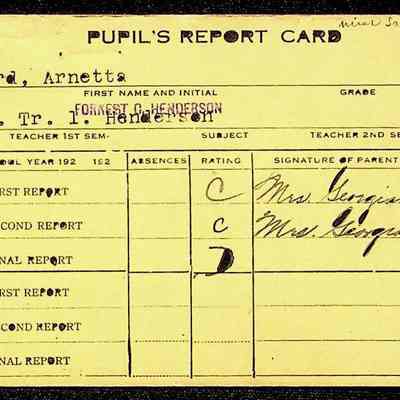 PUPIL'S REPORT CARD
rd, Arnetta
FIRST NAME AND INITIAL GRADE
FORREST G. HENDERSON
. Tr. 1. Henderson
TEACHER 1ST SEM. SUBJECT TEACHER 2ND SE
OOL YEAR 192 192 ABSENCES RATING SIGNATURE OF PARENT
RST REPORT C Mrs. Georgia
COND REPORT C Mrs. Georgia
NAL REPORT D
RST REPORT
COND REPORT
NAL REPORT